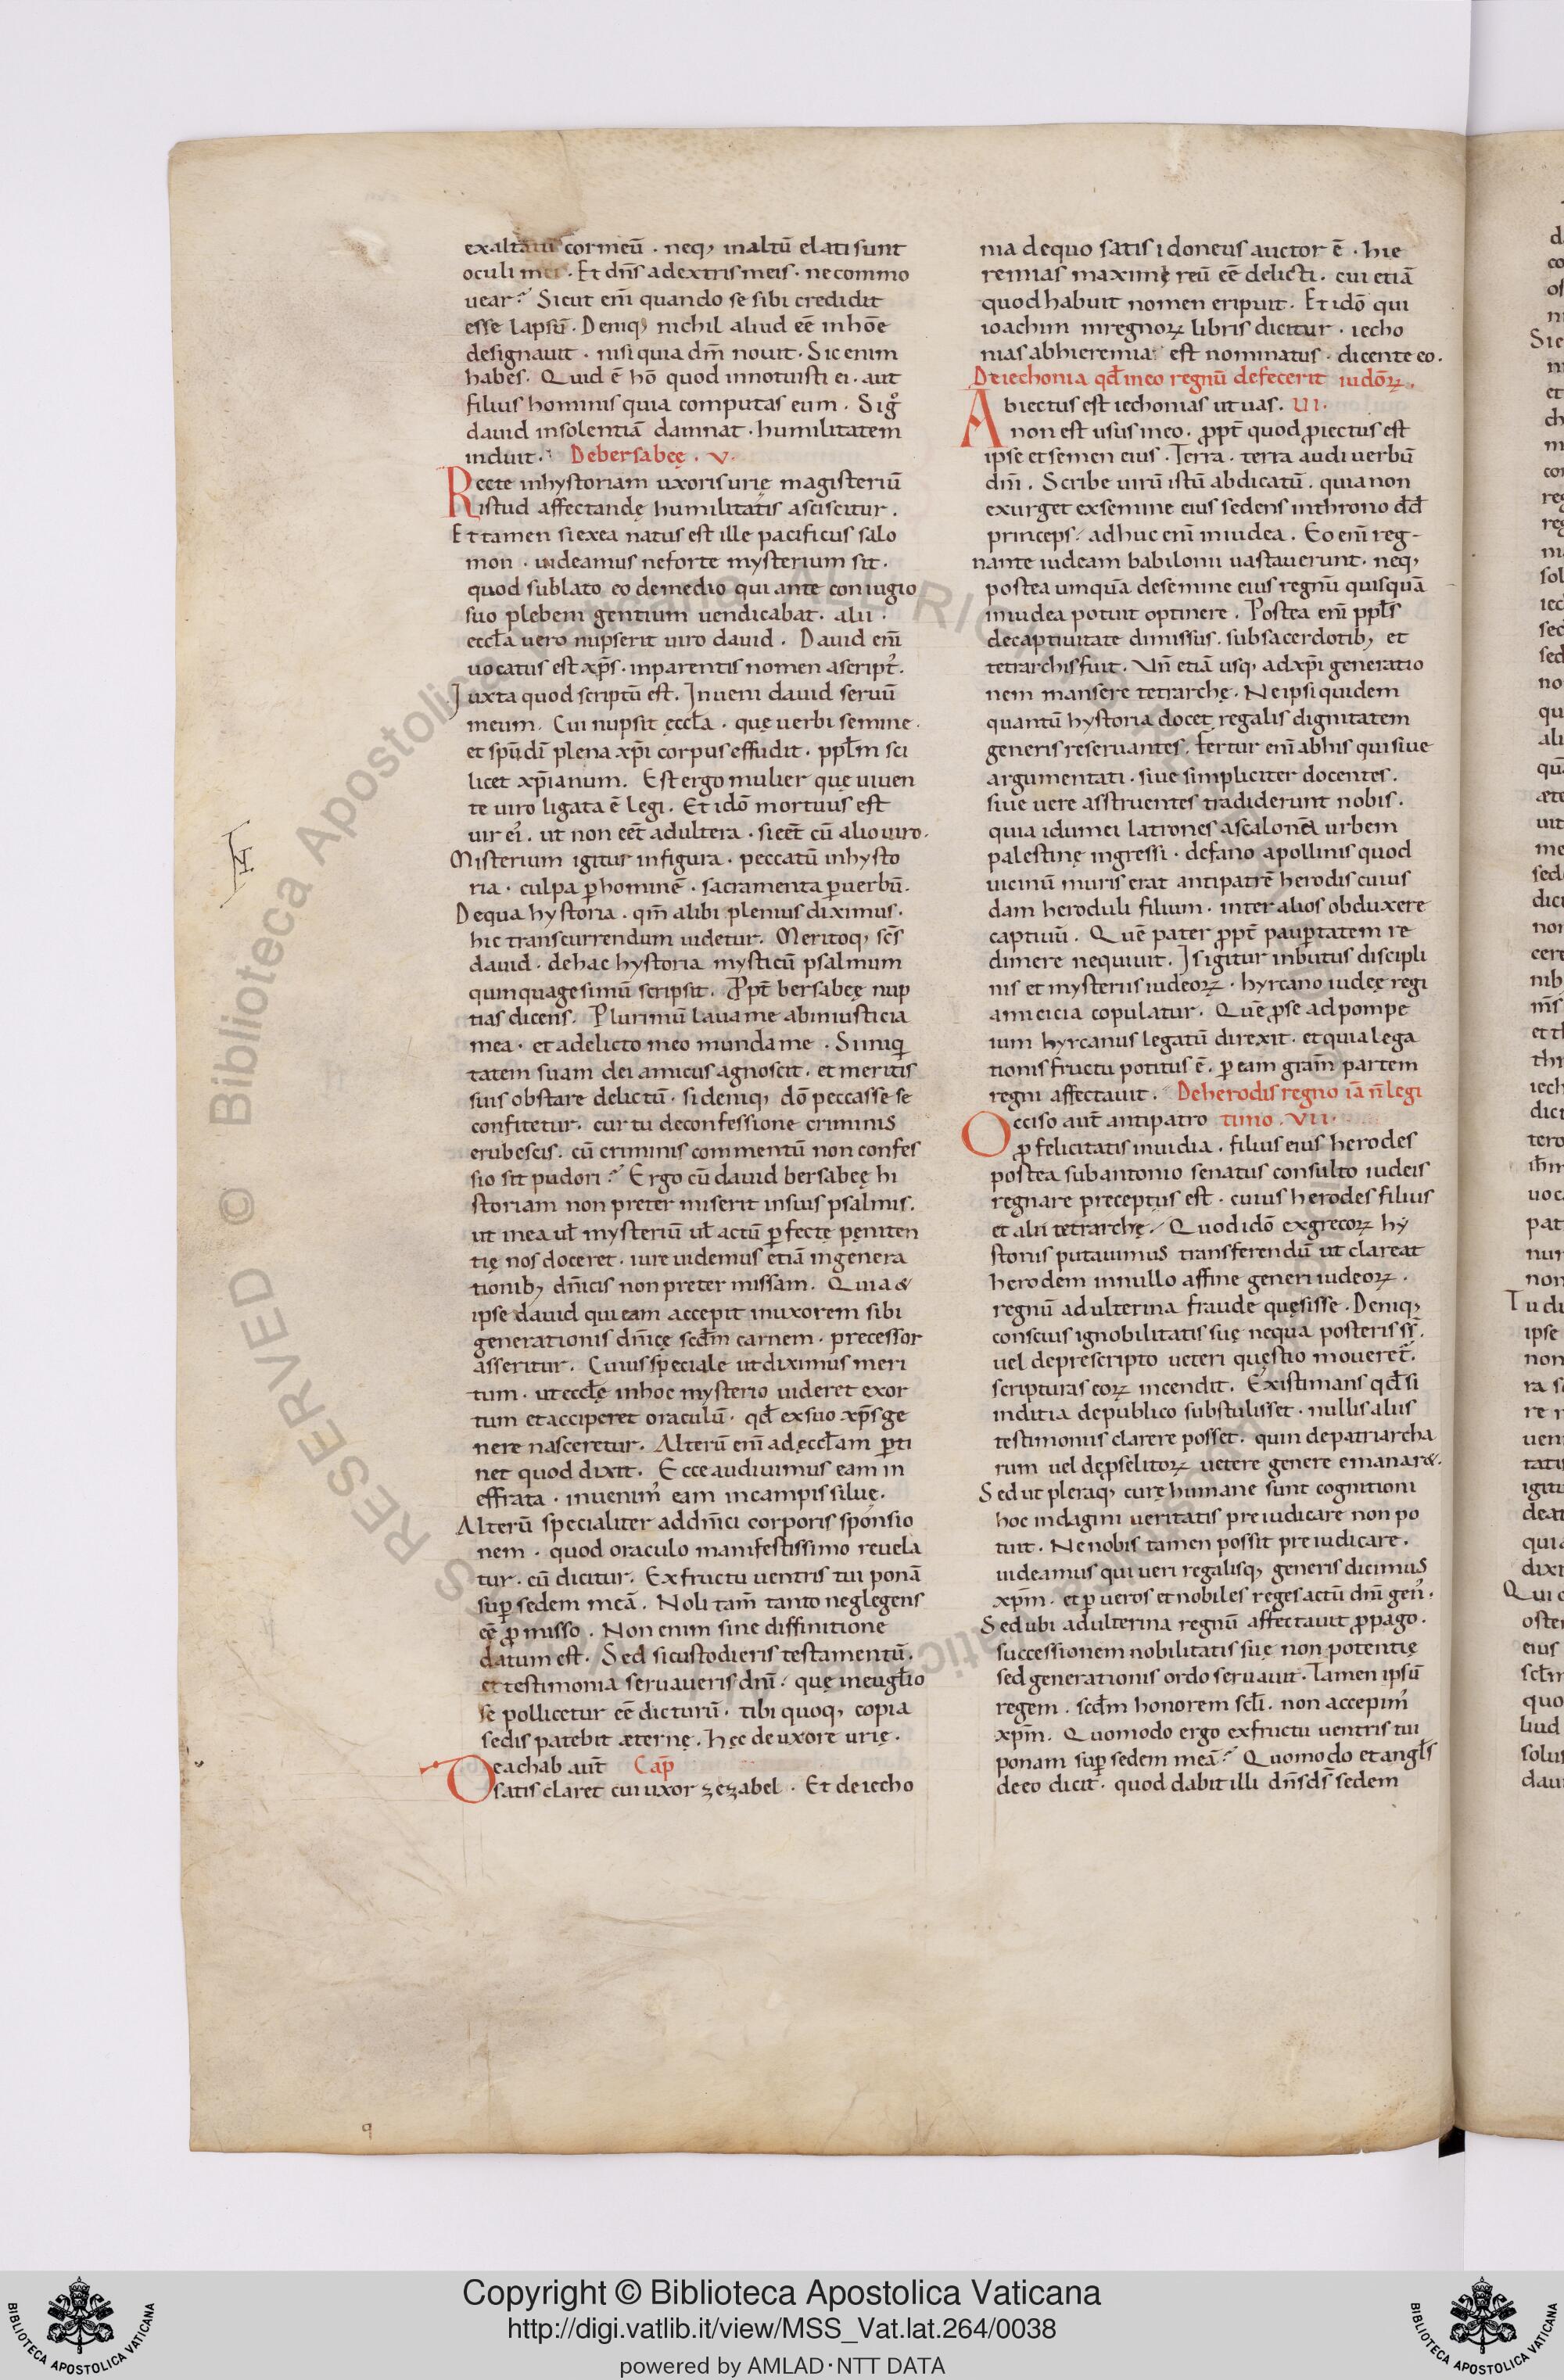 exaltatū cor meū . neq, in altū elati sunt
oculi mei . Et dn̄s a dextris meis . ne commo
uear? Sicut eni̅ quando se sibi credidit
esse lapsū . Deniq, nichil aliud eē in hōe
designauit . nisi quia dm̄ nouit . Sic enim
habes . Quid ē hō quod innotuisti ei . aut
filius hominis quia computas eum . Sigͦ
dauid insolentiā damnat . humilitatem
induit . De bersabeę . v .
Recte in hystoriam uxoris urię magisteriū
istud affectandę humilitatis asciscitur .
Et tamen si ex ea natus est ille pacificus salo
mon . uideamus ne forte mysterium sit .
quod sublato eo de medio qui ante coniugio
suo plebem gentium uendicabat . alii .
eccl̄a uero nupserit uiro dauid . Dauid eni̅
uocatus est xp̄s . in parentis nomen ascript᾿ .
Iuxta quod scriptū est . Inueni dauid seruū
meum . Cui nupsit ęccl̄a . quę uerbi semine .
et spū dī plena xp̄i corpus effudit . ppl̄m sci
licet xp̄ianum . Est ergo mulier quę uiuen
te uiro ligata ē legi . Et idō mortuus est
uir ei᾿ . ut non eēt adultera . si eēt cū alio uiro .
Misterium igitur in figura . peccatū in hysto
ria . culpa ꝑ hominē . sacramenta ꝑ uerbū .
De qua hystoria . qm̄ alibi plenius diximus .
hic transcurrendum uidetur . Meritoq, sc̄s
dauid . de hac hystoria mysticū psalmum
quinquagesimū scripsit . Ꝓpt̄ bersabeę nup
tias dicens . Plurimū laua me ab iniusticia
mea . et a delicto meo munda me . Si iniq
tatem suam dei amicus agnoscit . et meritis
suis obstare delictū . si deniq, dō peccasse se
confitetur . cur tu de confessione criminis
erubescis . cū criminis commentū non confes
sio sit pudori? Ergo cū dauid bersabeę hi
storiam non pretermiserit in suis psalmis .
ut in ea ul̄ mysteriū ul̄ actū ꝑfectę pęniten
tię nos doceret . iure uidemus etiā in genera
tionib, dn̄icis non pretermissam . Quia &
ipse dauid qui eam accepit in uxorem sibi
generationis dn̄icę scd̄m carnem . precessor
asseritur . Cuius speciale ut diximus meri
tum . ut eccl̄ę in hoc mysterio uideret exor
tum et acciperet oraculū . qd̄ ex suo xp̄s ge
nere nasceretur . Alterū eni̅ ad ęccl̄am ꝑti
net quod dixit . Ecce audiuimus eam in
effrata . inuenim᾿ eam in campis siluę .
Alterū specialiter ad dn̄ici corporis sponsio
nem . quod oraculo manifestissimo reuela
tur . cū dicitur . Ex fructu uentris tui ponā
suꝑ sedem meā . Noli tam̄ tanto neglegens
eē ꝓmisso . Non enim sine diffinitione
datum est . Sed si custodieris testamentū .
et testimonia seruaueris dnī . quę in eugl̄io
se pollicetur eē dicturū . tibi quoq, copia
sedis patebit æternę . hęc de uxore urię .
De achab aut̄ Cap̄
satis claret cui uxor zezabel . Et de iecho
nia de quo satis idoneus auctor ē . hie
remias maximę reū eē delicti . cui etiā
quod habuit nomen eripuit . Et idō qui
ioachim in regnoꝝ libris dicitur . iecho
nias ab hieremia est nominatus . dicente eo .
De iechonia qd̄ in eo regnū defecerit iudōꝝ .
Abiectus est iechonias ut uas . VI .
non est usus in eo . ꝓpt̄ quod ꝓiectus est
ipse et semen eius . Terra . terra audi uerbū
dn̄i . Scribe uirū istū abdicatū . quia non
exurget ex semine eius sedens in throno dd̄
princeps . adhuc eni̅ in iudea . Eo eni̅ reg-
nante iudeam babilonii uastauerunt . neq,
postea umquā de semine eius regnū quisquā
in iudea potuit optinere . Postea eni̅ ppl̄s
de captiuitate dimissus . sub sacerdotib, et
tetrarchis fuit . Vn̄ etiā usq, ad xp̄i generatio
nem mansere tetrarchę . Ne ipsi quidem
quantū hystoria docet regalis dignitatem
generis reseruantes . fertur eni̅ ab his qui siue
argumentati . siue simpliciter docentes .
siue uere asstruentes tradiderunt nobis .
quia idumei latrones ascalonē urbem
palestinę ingressi . de fano apollinis quod
uicinū muris erat antipatrē herodis cuius
dam heroduli filium . inter alios obduxere
captiuū . Quē pater ꝓpt̄ pauꝑtatem re
dimere nequiuit . Is igitur inbutus discipli
nis et mysteriis iudeoꝝ . hyrcano iudeę regi
amicicia copulatur . Quē ꝓ se ad pompe
ium hyrcanus legatū direxit . et quia lega
tionis fructu potitus ē . ꝑ eam gr̄am partem
regni affectauit . De herodis regno iā n̄ legi
Occiso aut̄ antipatro timo . VII .
ꝓ felicitatis inuidia . filius eius herodes
postea sub antonio senatus consulto iudeis
regnare preceptus est . cuius herodes filius
et alii tetrarchę . Quod idō ex grecoꝝ hy
storiis putauimus transferendū ut clareat
herodem in nullo affine generi iudeoꝝ .
regnū adulterina fraude quęsisse . Deniq,
conscius ignobilitatis suę nequa posteris ss̄ .
uel de prescripto ueteri quęstio moueret̄ .
scripturas eoꝝ incendit . Existimans qd̄ si
inditia de publico substulisset . nullis aliis
testimoniis clarere posset . quin de patriarcha
rum uel de pselitoꝝ uetere genere emanar& .
Sed ut pleraq, curę humane sunt cognitioni
hoc indagini ueritatis preiudicare non po
tuit . Ne nobis tamen possit preiudicare .
uideamus qui ueri regalisq, generis dicimus
xp̄m . et ꝑ ueros et nobiles reges actū dn̄i gen᾿ .
Sed ubi adulterina regnū affectauit ꝓpago .
successionem nobilitatis suę non potentię
sed generationis ordo seruauit . Tamen ipsū
regem . scd̄m honorem scl̄i . non accepim᾿
xp̄m . Quomodo ergo ex fructu uentris tui
ponam suꝑ sedem meā? Quomodo et angl̄s
de eo dicit . quod dabit illi dn̄s ds̄ sedem
9
Copyright © Biblioteca Apostolica Vaticana
http://digi.vatlib.it/view/MSS_Vat.lat.264/0038
powered by AMLAD·NTT DATA
BIBLIOTECA APOSTOLICA VATICANA
BIBLIOTECA APOSTOLICA VATICANA